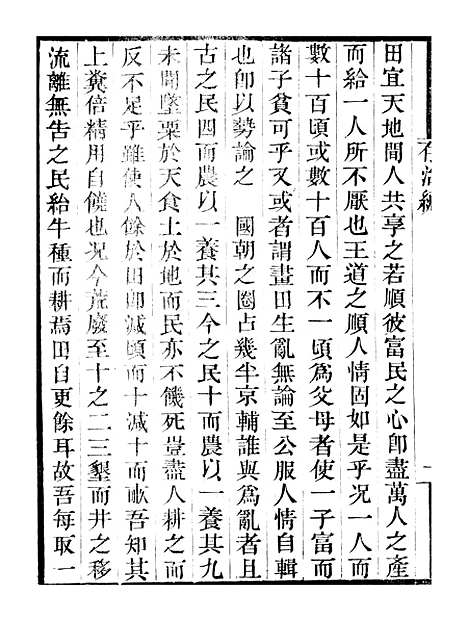 存治編
田宜天地間人共享之若順彼富民之心卽盡萬人之產
而給一人所不厭也王道之順人情固如是乎況一人而
數十百頃或數十百人而不一頃爲父母者使一子富而
諸子貧可乎又或者謂畫田生亂無論至公服人情自輯
也卽以勢論之 國朝之圈占幾半京輔誰與爲亂者且
古之民四而農以一養其三今之民十而農以一養其九
未聞墜粟於天食土於地而民亦不饑死豈盡人耕之而
反不足乎雖使人餘於田卽減頃而十減十而畝吾知其
上糞倍精用自饒也況今荒廢至十之二三墾而井之移
流離無告之民給牛種而耕焉田自更餘耳故吾每取一